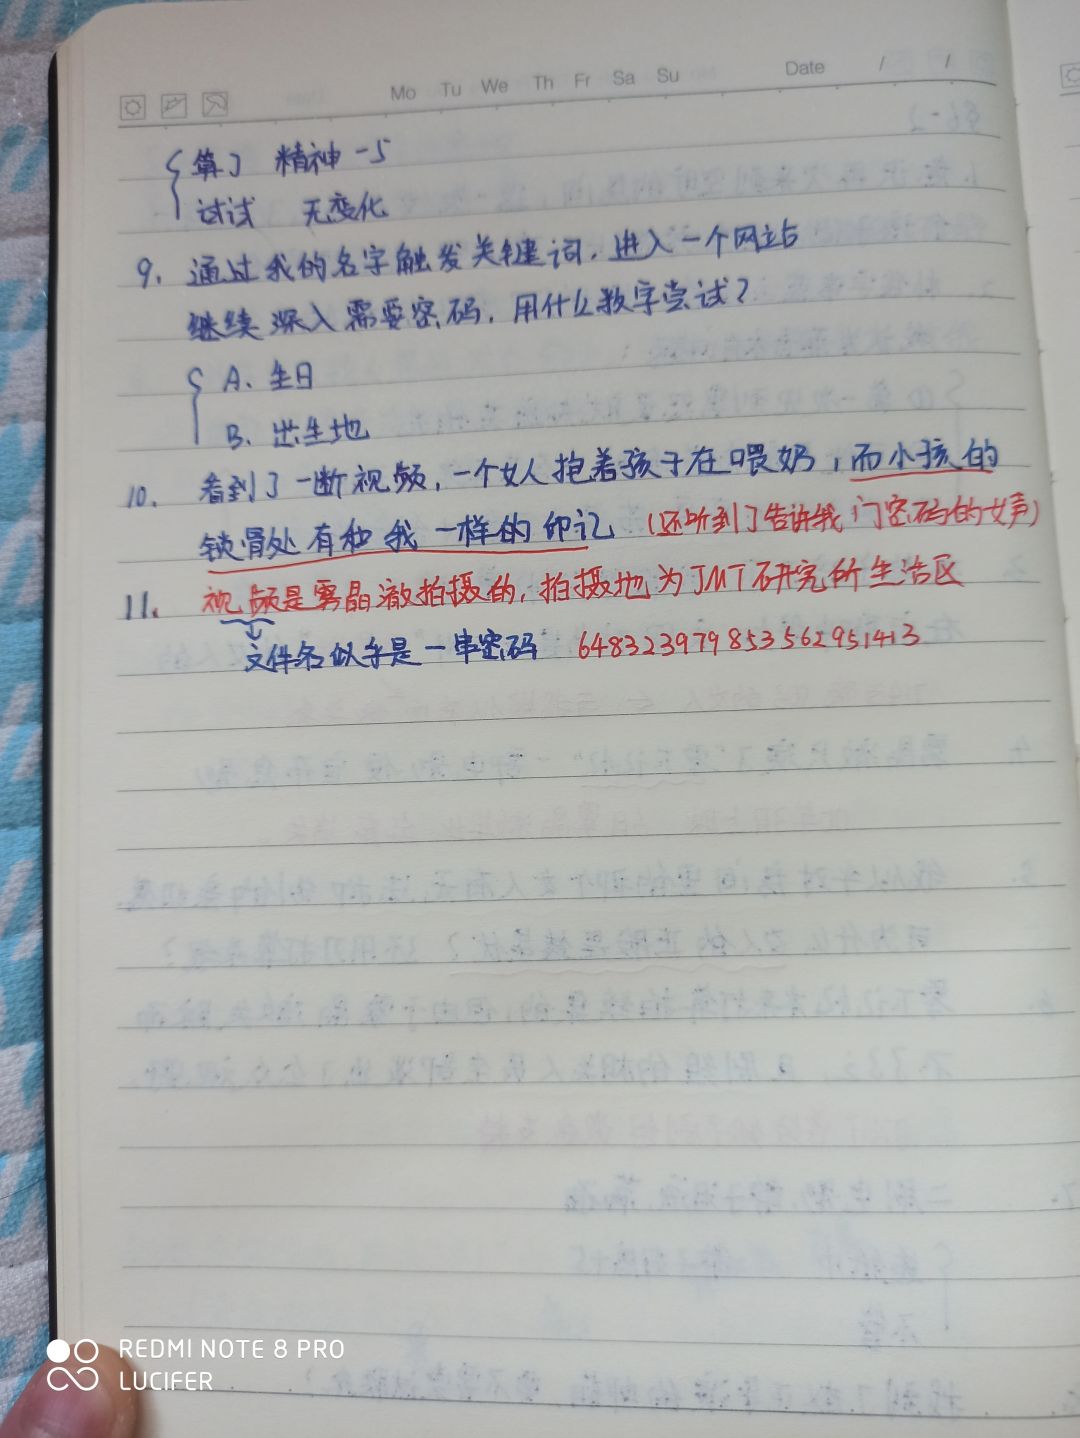 Mo Tu We Th Fr Sa Su Date / /
算了 精神-5
试试 无变化
9. 通过我的名字触发关键词，进入一个网站
继续深入需要密码，用什么数字尝试？
A. 生日
B. 出生地
10. 看到了一断视频，一个女人抱着孩子在喂奶，而小孩的
锁骨处有和我一样的印记（还听到了告诉我门密码的女声）
11. 视频是雾晶澈拍摄的，拍摄地为JMT研究所生活区
文件名似乎是一串密码 648323979853562951413
REDMI NOTE 8 PRO
LUCIFER